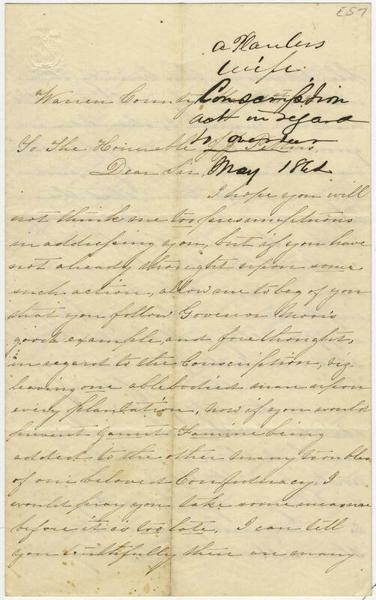 E57
a Planters
wife
Warren County
Conscription
act in regard
to overseer
To The Honorable J. J. Pettus
Dear Sir,
May 1862
I hope you will
not think me too presumptuous
in addressing you, but if you have
not already thought upon some
such action, allow me to beg of you
that you follow Govenor Moore's
good example, and forethought,
in regard to the Conscription, viz.
leaving one ablebodied man upon
every plantation, Now if you would
prevent gaunt Famine being
added to the other many troubles
of our beloved Confederacy, I
would pray you take some measures
before it is too late, I can tell
you truthfully there are many